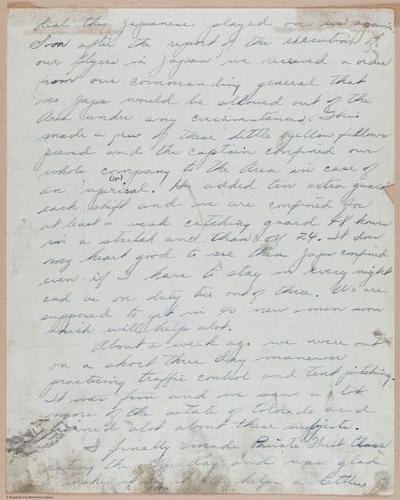 deal the Japanese played on us again.
Soon after the report of the execution of
our flyers in Japan we received a order
from our commanding general that
no Japs would be allowed out of the
Area under any circumstances. This
made a few of these little yellow fellows
peeved and the captain confined our
whole company to the Area in case of
an uprisal. He added ten extra guards
each shift and we are confined for
at least a weak catching guard 48 hours
in a stretch and than off 24. It does
my heart good to see thea Japs confined
even if I have to stay in every night
and be on duty two out of three. We are
supposed to get in 40 new men soon
which will help alot.
About a week ago we were out
on a short three day maneuver
practicing traffic control and tent pitching.
It was fun and we saw a lot
more of the state of Colorado and
learned alot about these subjects.
I finally made Private First Class
rating the day and was glad
make it helps a little